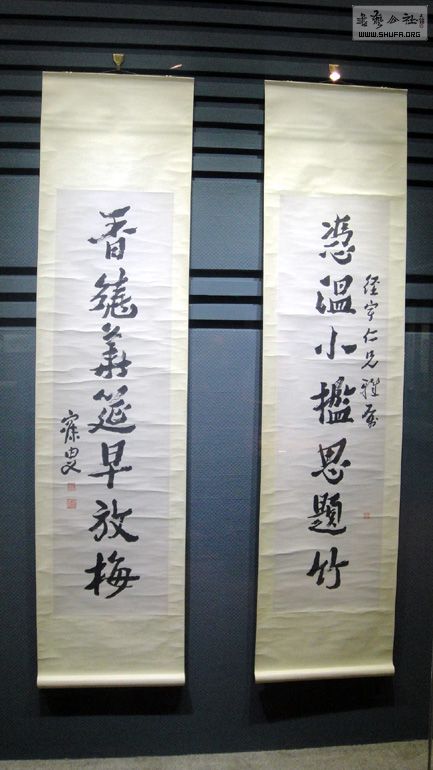 書藝公社
WWW.SHUFA.ORG
憑溫小檻思題竹
仁兄雅屬
香繞華筵早放梅
寐叟